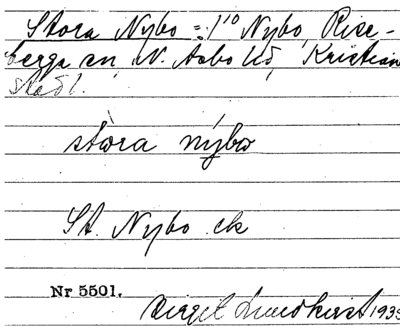 Stora Nybo = 1/10 Nybo, Rise-
berga sn, N. Åsbo hd, Kristian
stads l.
stòra nýbo
St. Nybo ek
Nr 5501.
Birgit Lundkvist 1935